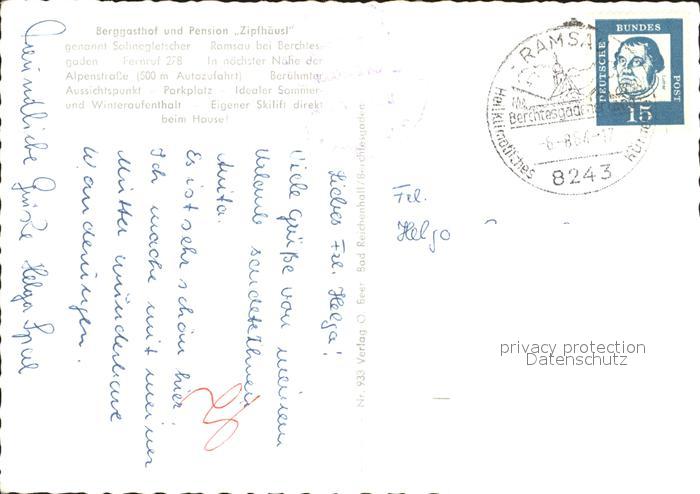 Berggasthof und Pension „Zipfhäusl"
genannt Salinegletscher Ramsau bei Berchtes-
gaden Fernruf 278 In nächster Nähe der
Alpenstraße (500 m Autozufahrt) Berühmter
Aussichtspunkt - Parkplatz - Idealer Sommer-
und Winteraufenthalt - Eigener Skilift direkt
beim Hause!
Liebes Frl. Helga!
Viele Grüße von meinem
Urlaub sendet Ihnen
Anita.
Es ist sehr schön hier.
Ich mache mit meiner
Mutter wunderbare
Wanderungen.
Freundliche Grüße Helga
Nr. 933 Verlag O. Beer Bad Reichenhall/Berchtesgaden
RAMSAU
Berchtesgaden
Heilklimatisches
8243
DEUTSCHE
BUNDES
POST
Luther
15
Frl.
Helga
privacy protection
Datenschutz